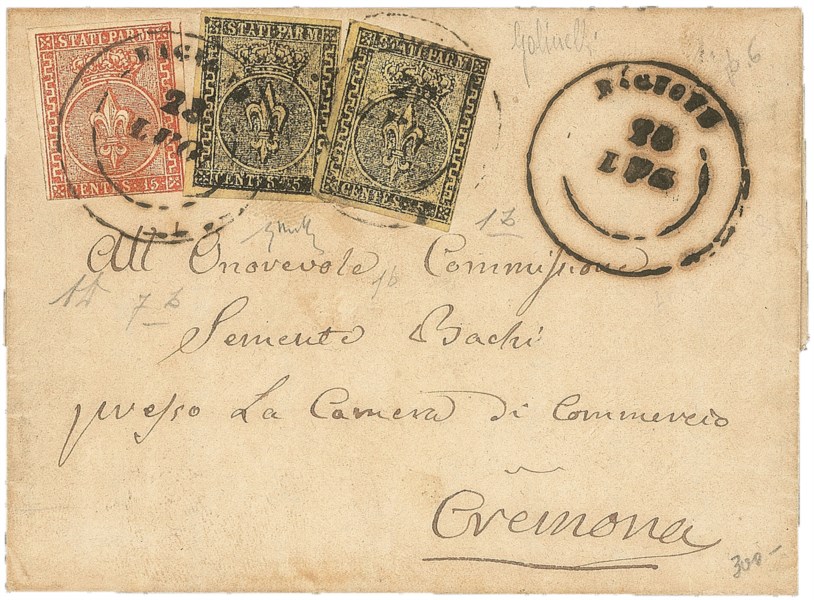 STATI PARM
CENTES. 15
STATI PARM
CENTES. 5
STATI PARM
CENTES. 5
28
LUG
28
LUG
Golinelli
All Onorevole Commissione
1b
7 b
Semente Bachi
presso La Camera di Commercio
Cremona
300-